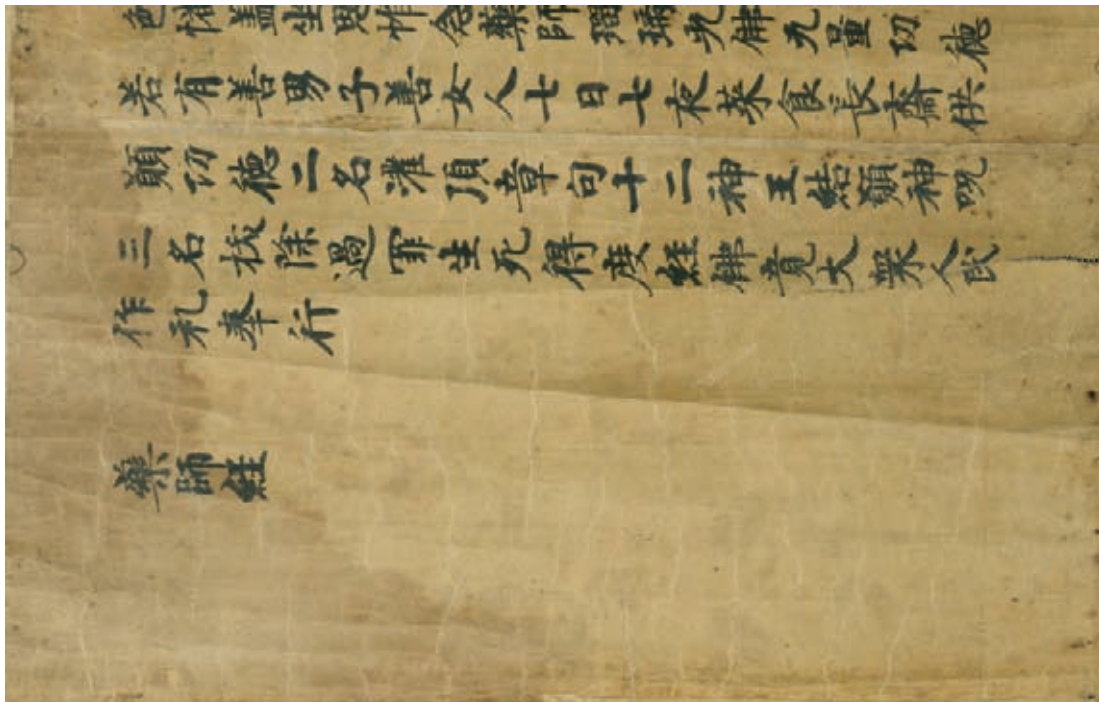 色蓋坐思念藥師瑠璃光佛无量功德
若有善男子善女人七日七夜菜食長齋供
願功德二名灌頂章句十二神王結願神呪
三名拔除過罪生死得度經佛竟大衆人民
作礼奉行
藥師經